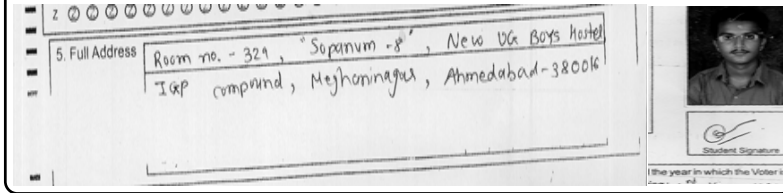 5. Full Address
Room no. - 329, "Sopanum -8", New UG Boys hostel
IGP compound, Meghaninagar, Ahmedabad-380016
Student Signature
l the year in which the Voter